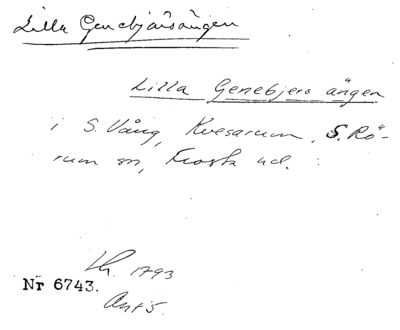 Lilla Genebjärsängen
Lilla Genebjers ängen
i S. Vång, Kvesarum. S. Rö-
rum sn, Frosta hd. :
Lh. 1793
Nr 6743.
Akt 5.